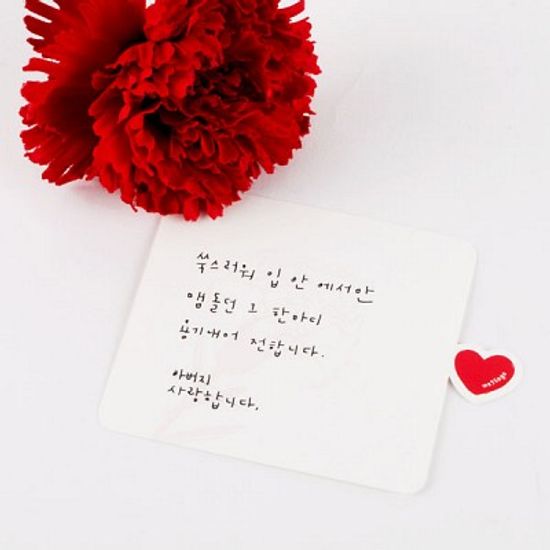 쑥스러워 입 안 에서만
맴 돌던 그 한마디
용기내어 전합니다.
아버지
사랑합니다.
message